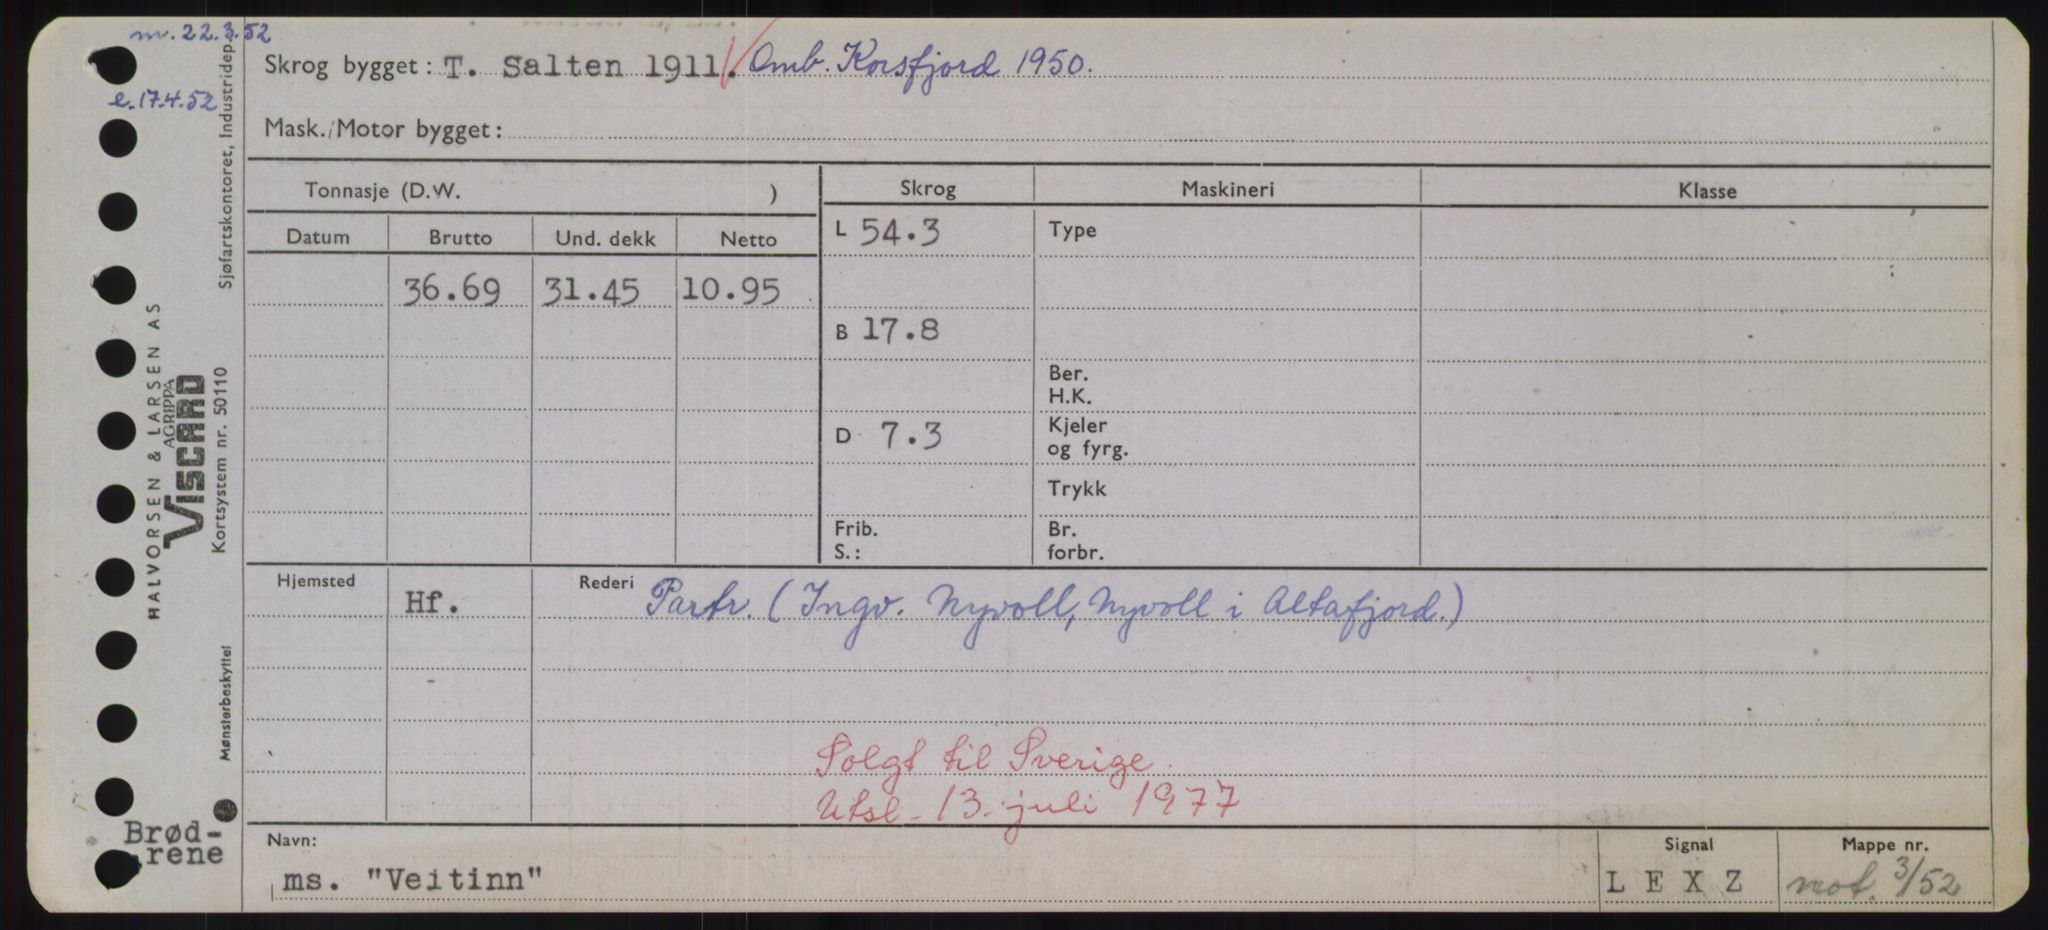 m. 22.3.52
e. 17.4.52
Skrog bygget: T. Salten 1911. Omb. Korsfjord 1950.
Mask./Motor bygget:
Tonnasje (D.W. )
Skrog
Maskineri
Klasse
Datum Brutto Und. dekk Netto
36.69 31.45 10.95
L 54.3
B 17.8
D 7.3
Frib.
S.:
Type
Ber.
H.K.
Kjeler
og fyrg.
Trykk
Br.
forbr.
Hjemsted
Hf.
Rederi
Partr. (Ingv. Nyvoll, Nyvoll i Altafjord.)
Solgt til Sverige.
Utsl. 13. juli 1977
Navn:
ms. "Veitinn"
Signal
LEXZ
Mappe nr.
mot. 3/52
Brød-
rene
Sjøfartskontoret, Industridep.
Kortsystem nr. 50110
Mønsterbeskyttet
HALVORSEN & LARSEN AS
AGRIPPA
VISCARD